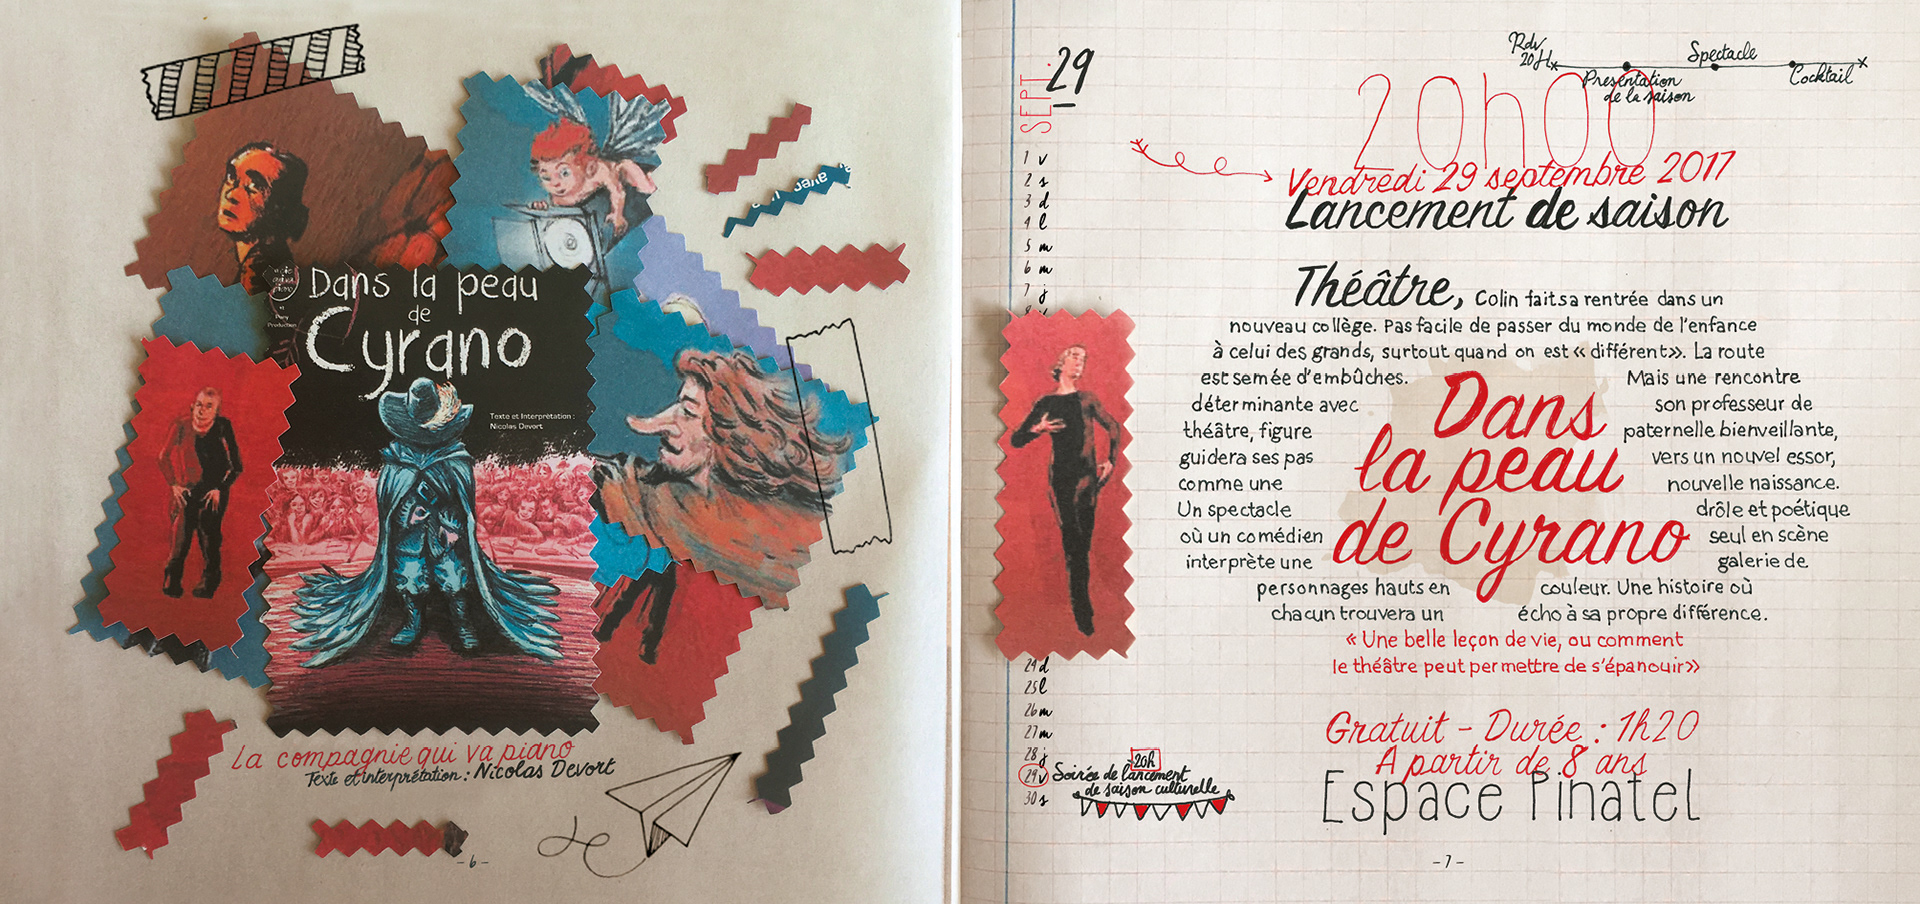 avec
Dans la peau
de
Cyrano
Texte et Interprétation :
Nicolas Devort
La compagnie qui va piano
Texte et interprétation : Nicolas Devort
- 6 -
SEPT. 29
Rdv
20H
Présentation
de la saison
Spectacle
Cocktail
20h00
Vendredi 29 septembre 2017
Lancement de saison
1 v
2 s
3 d
4 l
5 m
6 m
7 j
24 d
25 l
26 m
27 m
28 j
29 v
30 s
20h
Soirée de lancement
de saison culturelle
Théâtre, Colin fait sa rentrée dans un
nouveau collège. Pas facile de passer du monde de l'enfance
à celui des grands, surtout quand on est « différent ». La route
est semée d'embûches. Mais une rencontre
déterminante avec son professeur de
théâtre, figure paternelle bienveillante,
guidera ses pas vers un nouvel essor,
comme une nouvelle naissance.
Un spectacle drôle et poétique
où un comédien seul en scène
interprète une galerie de
personnages hauts en couleur. Une histoire où
chacun trouvera un écho à sa propre différence.
Dans
la peau
de Cyrano
« Une belle leçon de vie, ou comment
le théâtre peut permettre de s'épanouir »
Gratuit - Durée : 1h20
A partir de 8 ans
Espace Pinatel
- 7 -